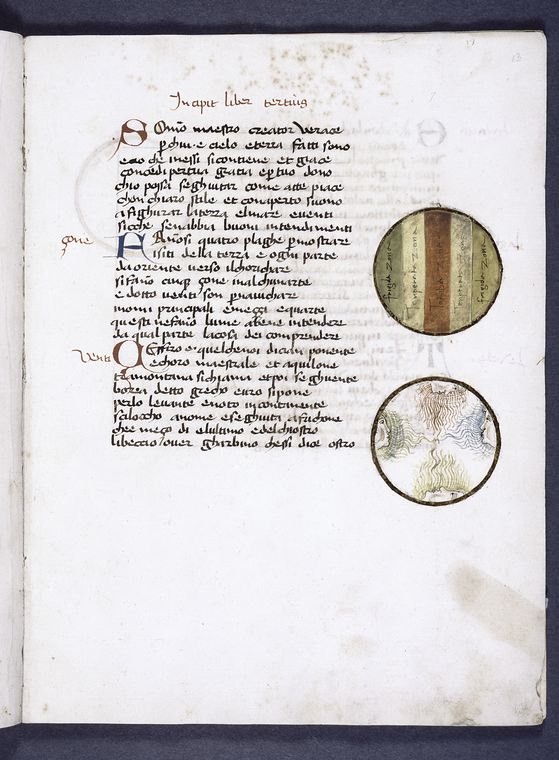 Incipit liber tertius
Somo maestro creator verace
p chui e cielo e terra fatti sono
e cio che inessi si contiene et giace
concedi per tua gratia e p tuo dono
chio possa seghuitar come atte piace
chon chiaro stile et con aperto suono
a fighurar la terra el mare e venti
sicche sen abbia buoni intendimenti
çone
Fannosi quatro plaghe p mostrare
i siti della terra e ogni parte
da oriente verso il choricharé
si fano cinqe çone in alchun arte
e dotto venti son p navichare
nomi principali e meççi e quarte
questi ne fano lume a bene intendere
da qual parte la cosa dei comprendere
venti
Oççifiro e quel che noi diciam ponente
e choro maestrale et aquilone
tramontana si chiama et poi seghuente
borea detto grecho euro si pone
per lo levante e noto incontinente
scilocho a nome e seghuita africhone
che e meço di e lultimo e del chiostro
libeccio over gharbino chessi dice ostro
frigida zona
Temperata zona
Torrida zona
temperata zona
frigida zona
13